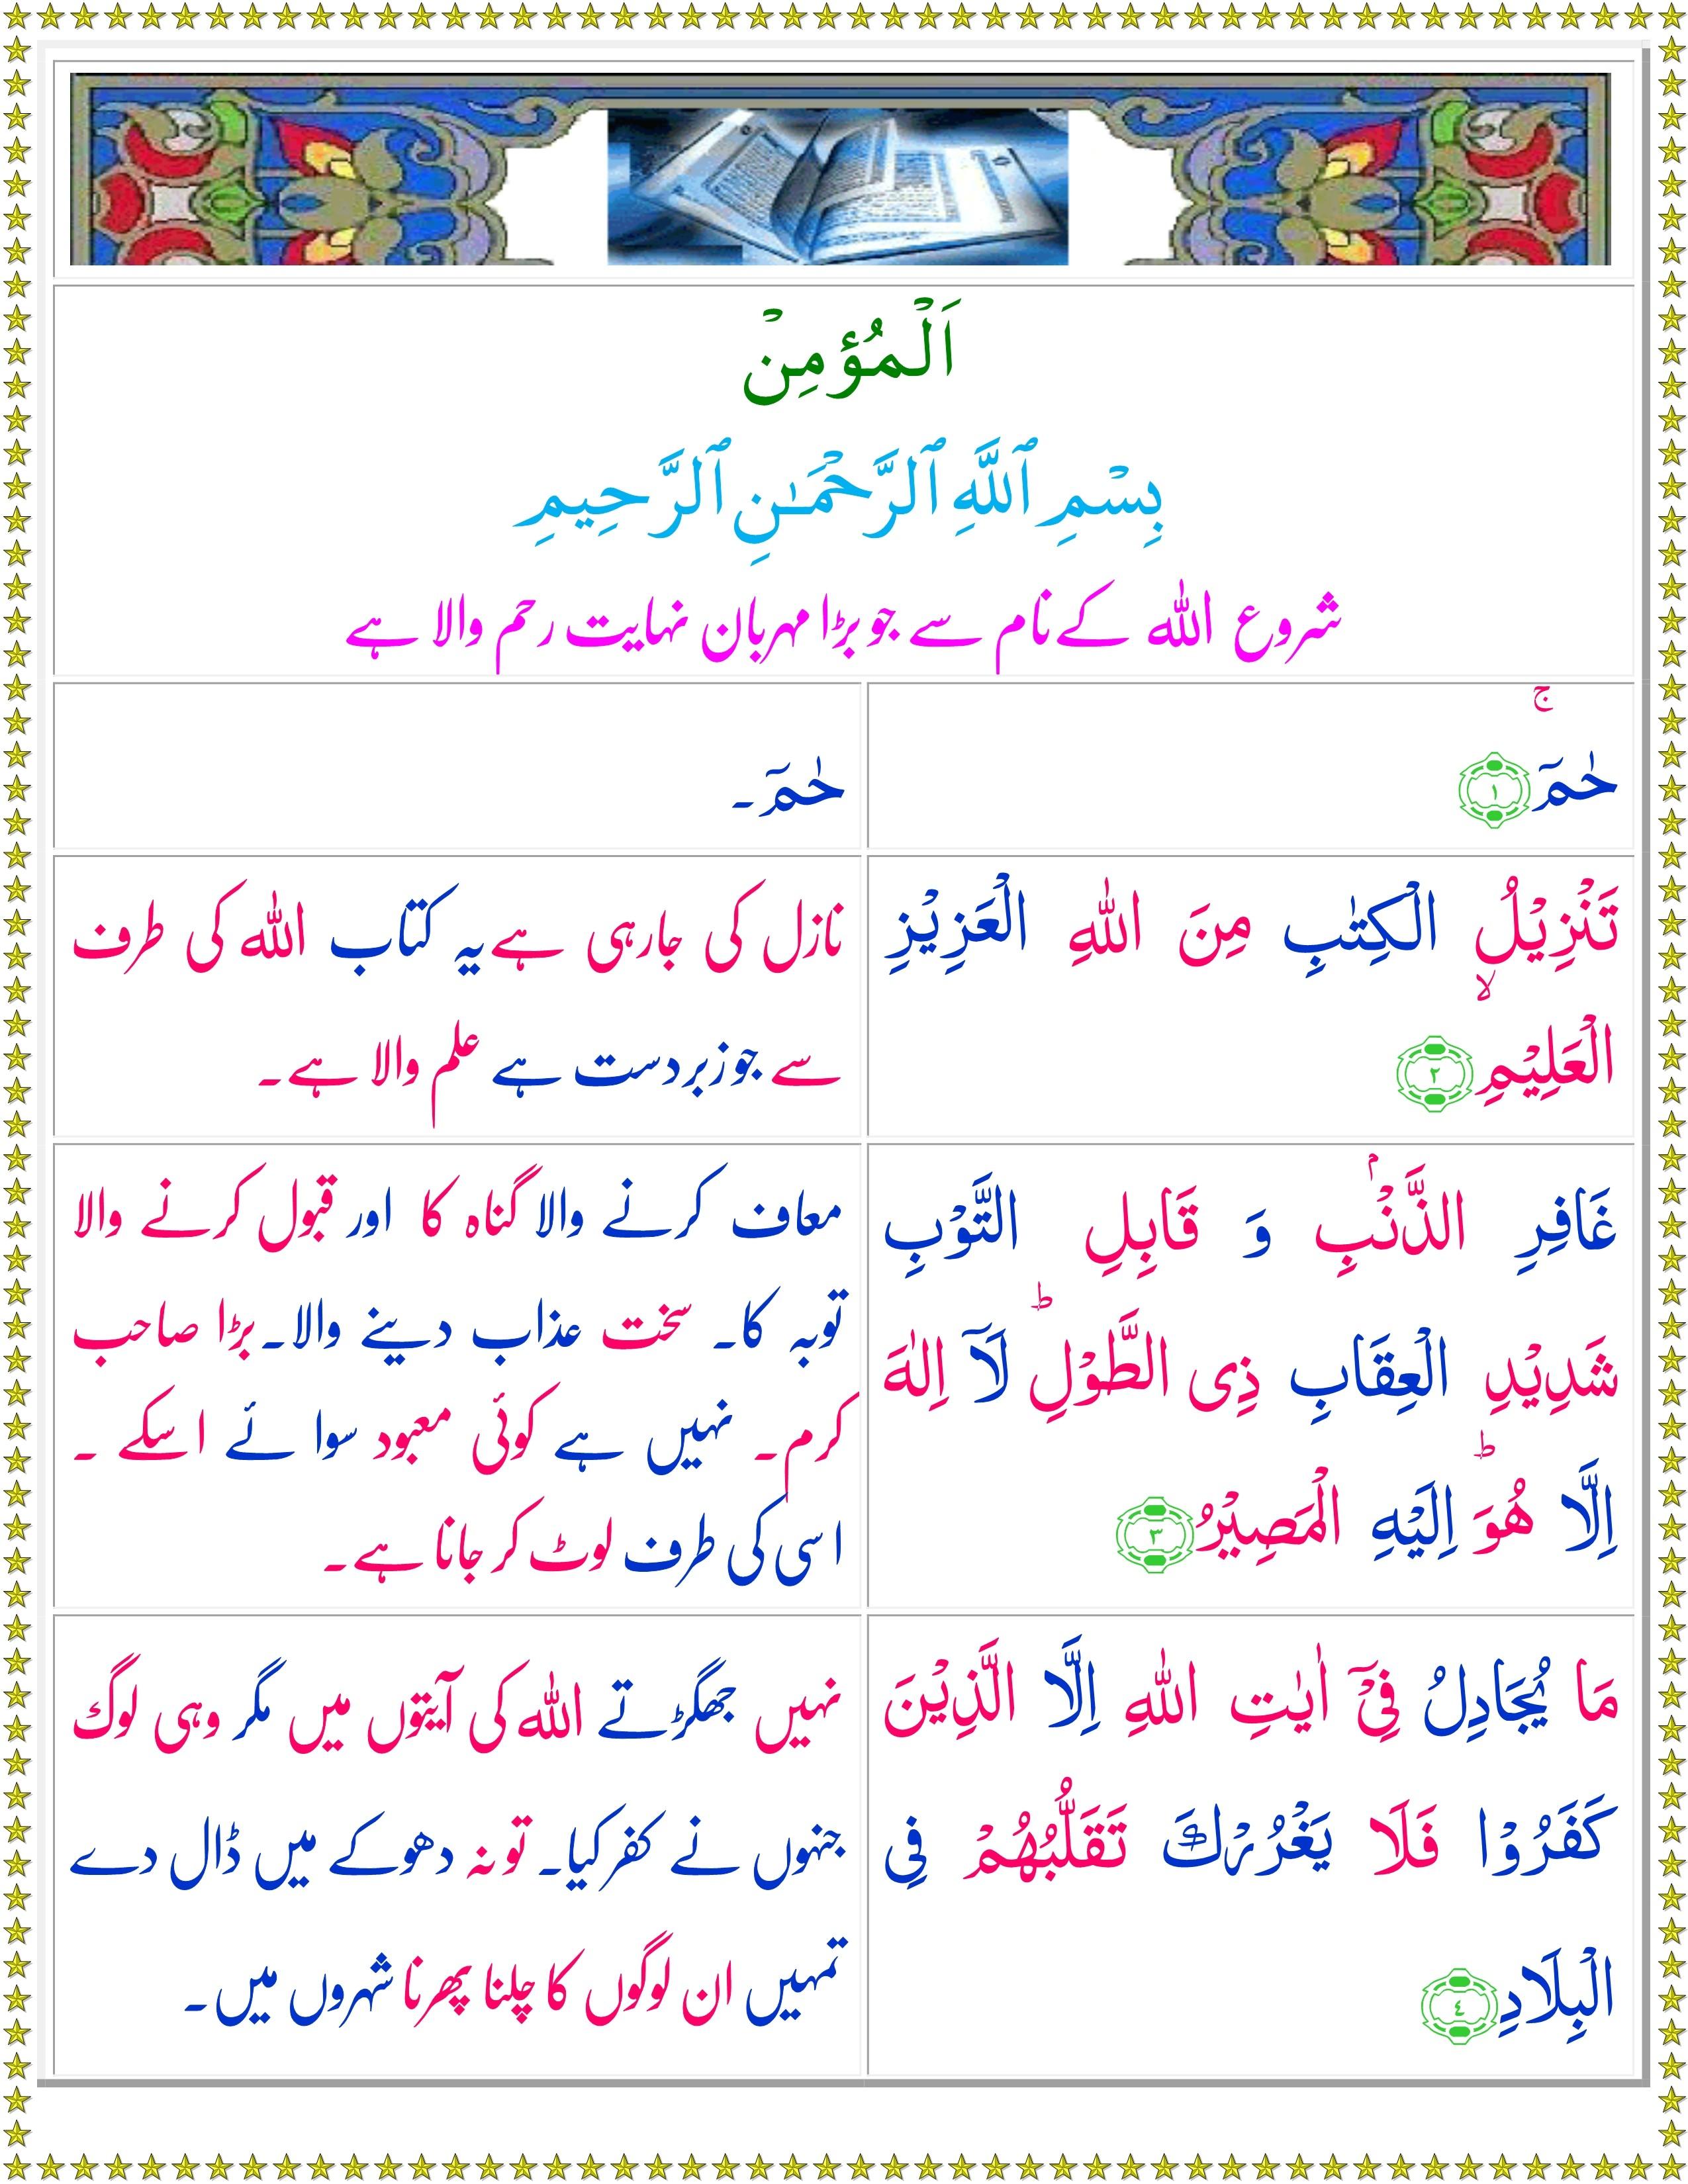 اَلْمُؤمِنْ
بِسْمِ ٱللَّهِ ٱلرَّحْمَـٰنِ ٱلرَّحِيمِ
شروع اللہ کے نام سے جو بڑا مہربان نہایت رحم والا ہے
حٰمٓ ۚ ﴿١﴾
حٰمٓ۔
تَنْزِيْلُ الْكِتٰبِ مِنَ اللّٰهِ الْعَزِيْزِ
الْعَلِيْمِ ۙ ﴿٢﴾
نازل کی جارہی ہے یہ کتاب اللہ کی طرف
سے جو زبردست ہے علم والا ہے۔
غَافِرِ الذَّنْۢبِ وَ قَابِلِ التَّوْبِ
شَدِيْدِ الْعِقَابِ ذِى الطَّوْلِ ؕ لَاۤ اِلٰهَ
اِلَّا هُوَ ؕ اِلَيْهِ الْمَصِيْرُ ﴿٣﴾
معاف کرنے والا گناہ کا اور قبول کرنے والا
توبہ کا۔ سخت عذاب دینے والا۔ بڑا صاحب
کرم۔ نہیں ہے کوئی معبود سوا ئے اسکے ۔
اسی کی طرف لوٹ کر جانا ہے۔
مَا يُجَادِلُ فِىْۤ اٰيٰتِ اللّٰهِ اِلَّا الَّذِيْنَ
كَفَرُوْا فَلَا يَغْرُرْكَ تَقَلُّبُهُمْ فِى
الْبِلَادِ ﴿٤﴾
نہیں جھگڑتے اللہ کی آیتوں میں مگر وہی لوگ
جنہوں نے کفر کیا۔ تو نہ دھوکے میں ڈال دے
تمہیں ان لوگوں کا چلنا پھرنا شہروں میں۔